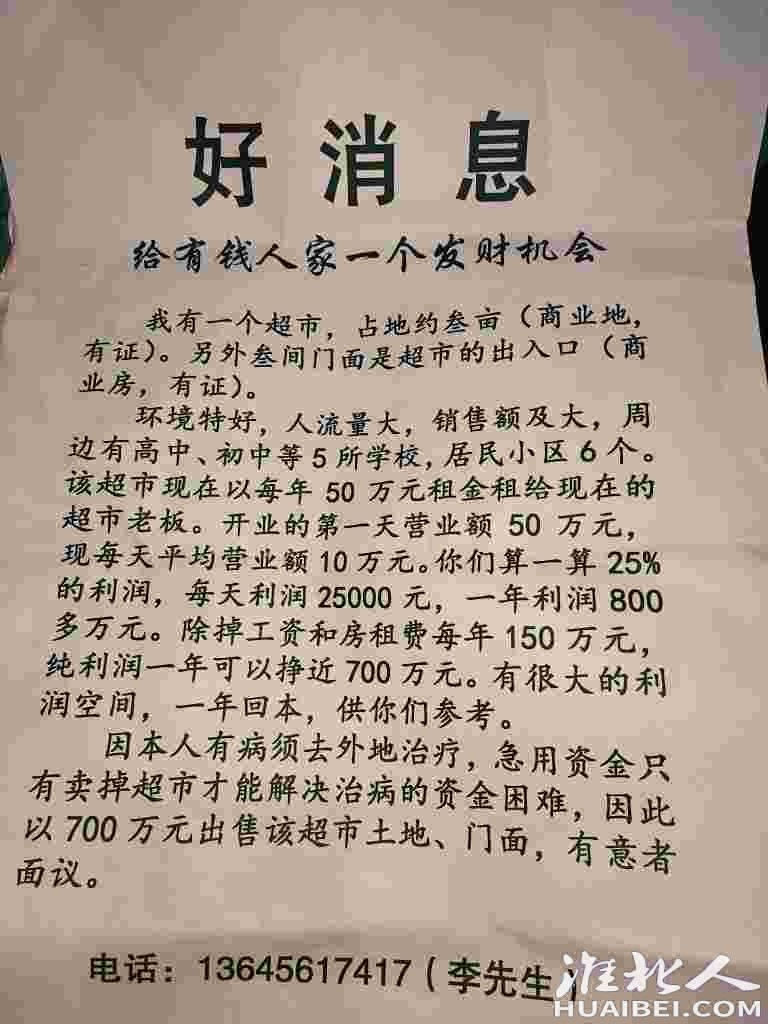 好消息
给有钱人家一个发财机会
我有一个超市，占地约叁亩（商业地，
有证）。另外叁间门面是超市的出入口（商
业房，有证）。
环境特好，人流量大，销售额及大，周
边有高中、初中等5所学校，居民小区6个。
该超市现在以每年50万元租金租给现在的
超市老板。开业的第一天营业额50万元，
现每天平均营业额10万元。你们算一算25%
的利润，每天利润25000元，一年利润800
多万元。除掉工资和房租费每年150万元，
纯利润一年可以挣近700万元。有很大的利
润空间，一年回本，供你们参考。
因本人有病须去外地治疗，急用资金只
有卖掉超市才能解决治病的资金困难，因此
以700万元出售该超市土地、门面，有意者
面议。
电话：13645617417（李先生）
淮北人
HUAIBEI.COM